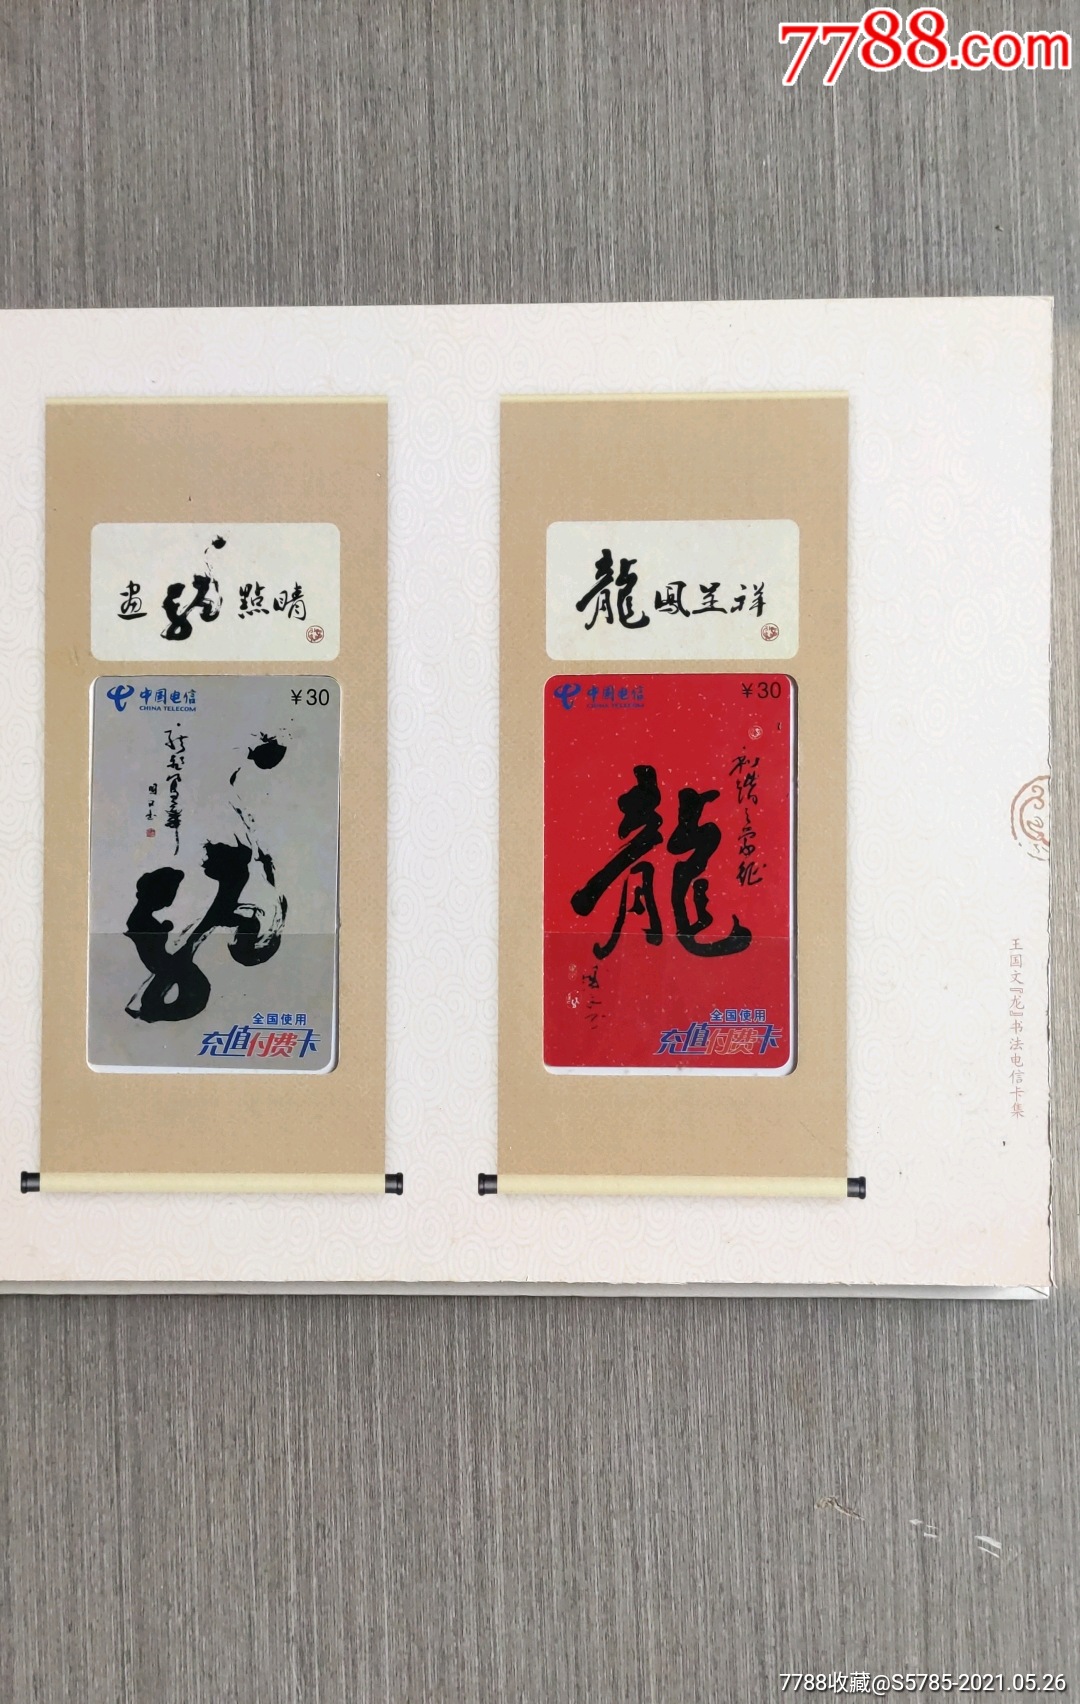 7788.com
画龍點睛
龍鳳呈祥
中国电信
CHINA TELECOM
¥30
国文书
龍
全国使用
充值付费卡
中国电信
CHINA TELECOM
¥30
和谐之象征
龍
国文书
全国使用
充值付费卡
王国文『龙』书法电信卡集
7788收藏@S5785-2021.05.26